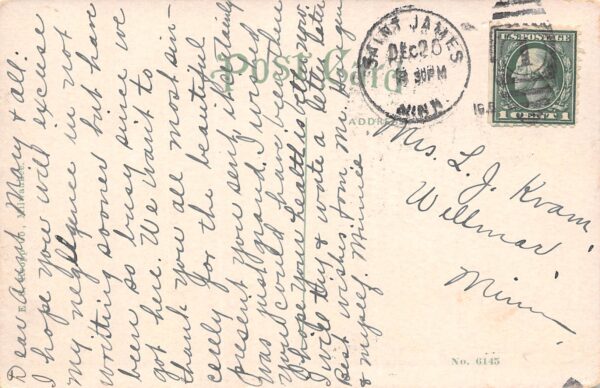 Dear Aunt Mary & all:
I hope you will excuse
my neglgence in not
writting sooner but have
been so busy since we
got here. We want to
thank you all most sin-
cerely for the beautiful
present you sent it certainly
was just grand. I wish
you could have been here
I hope your health is better now.
I will try & write a letter later
Best wishes from Mr. H to you
& myself. Minnie
Post Card
ADDRESS
SAINT JAMES
DEC 26
PM
MINN
U.S. POSTAGE
1 CENT 1
Mrs. L. J. Kvam,
Willmar,
Minn
No. 6145